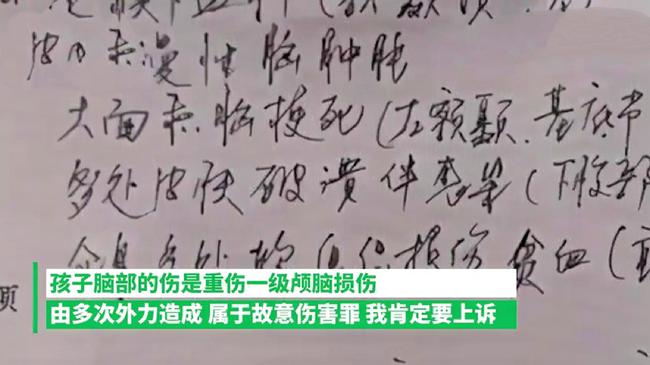 弥漫性脑肿胀
大面积脑梗死(左额颞.基底节
多处皮肤破溃伴感染(下肢部
全身多处软组织损伤 贫血(
项
孩子脑部的伤是重伤一级颅脑损伤
由多次外力造成 属于故意伤害罪 我肯定要上诉